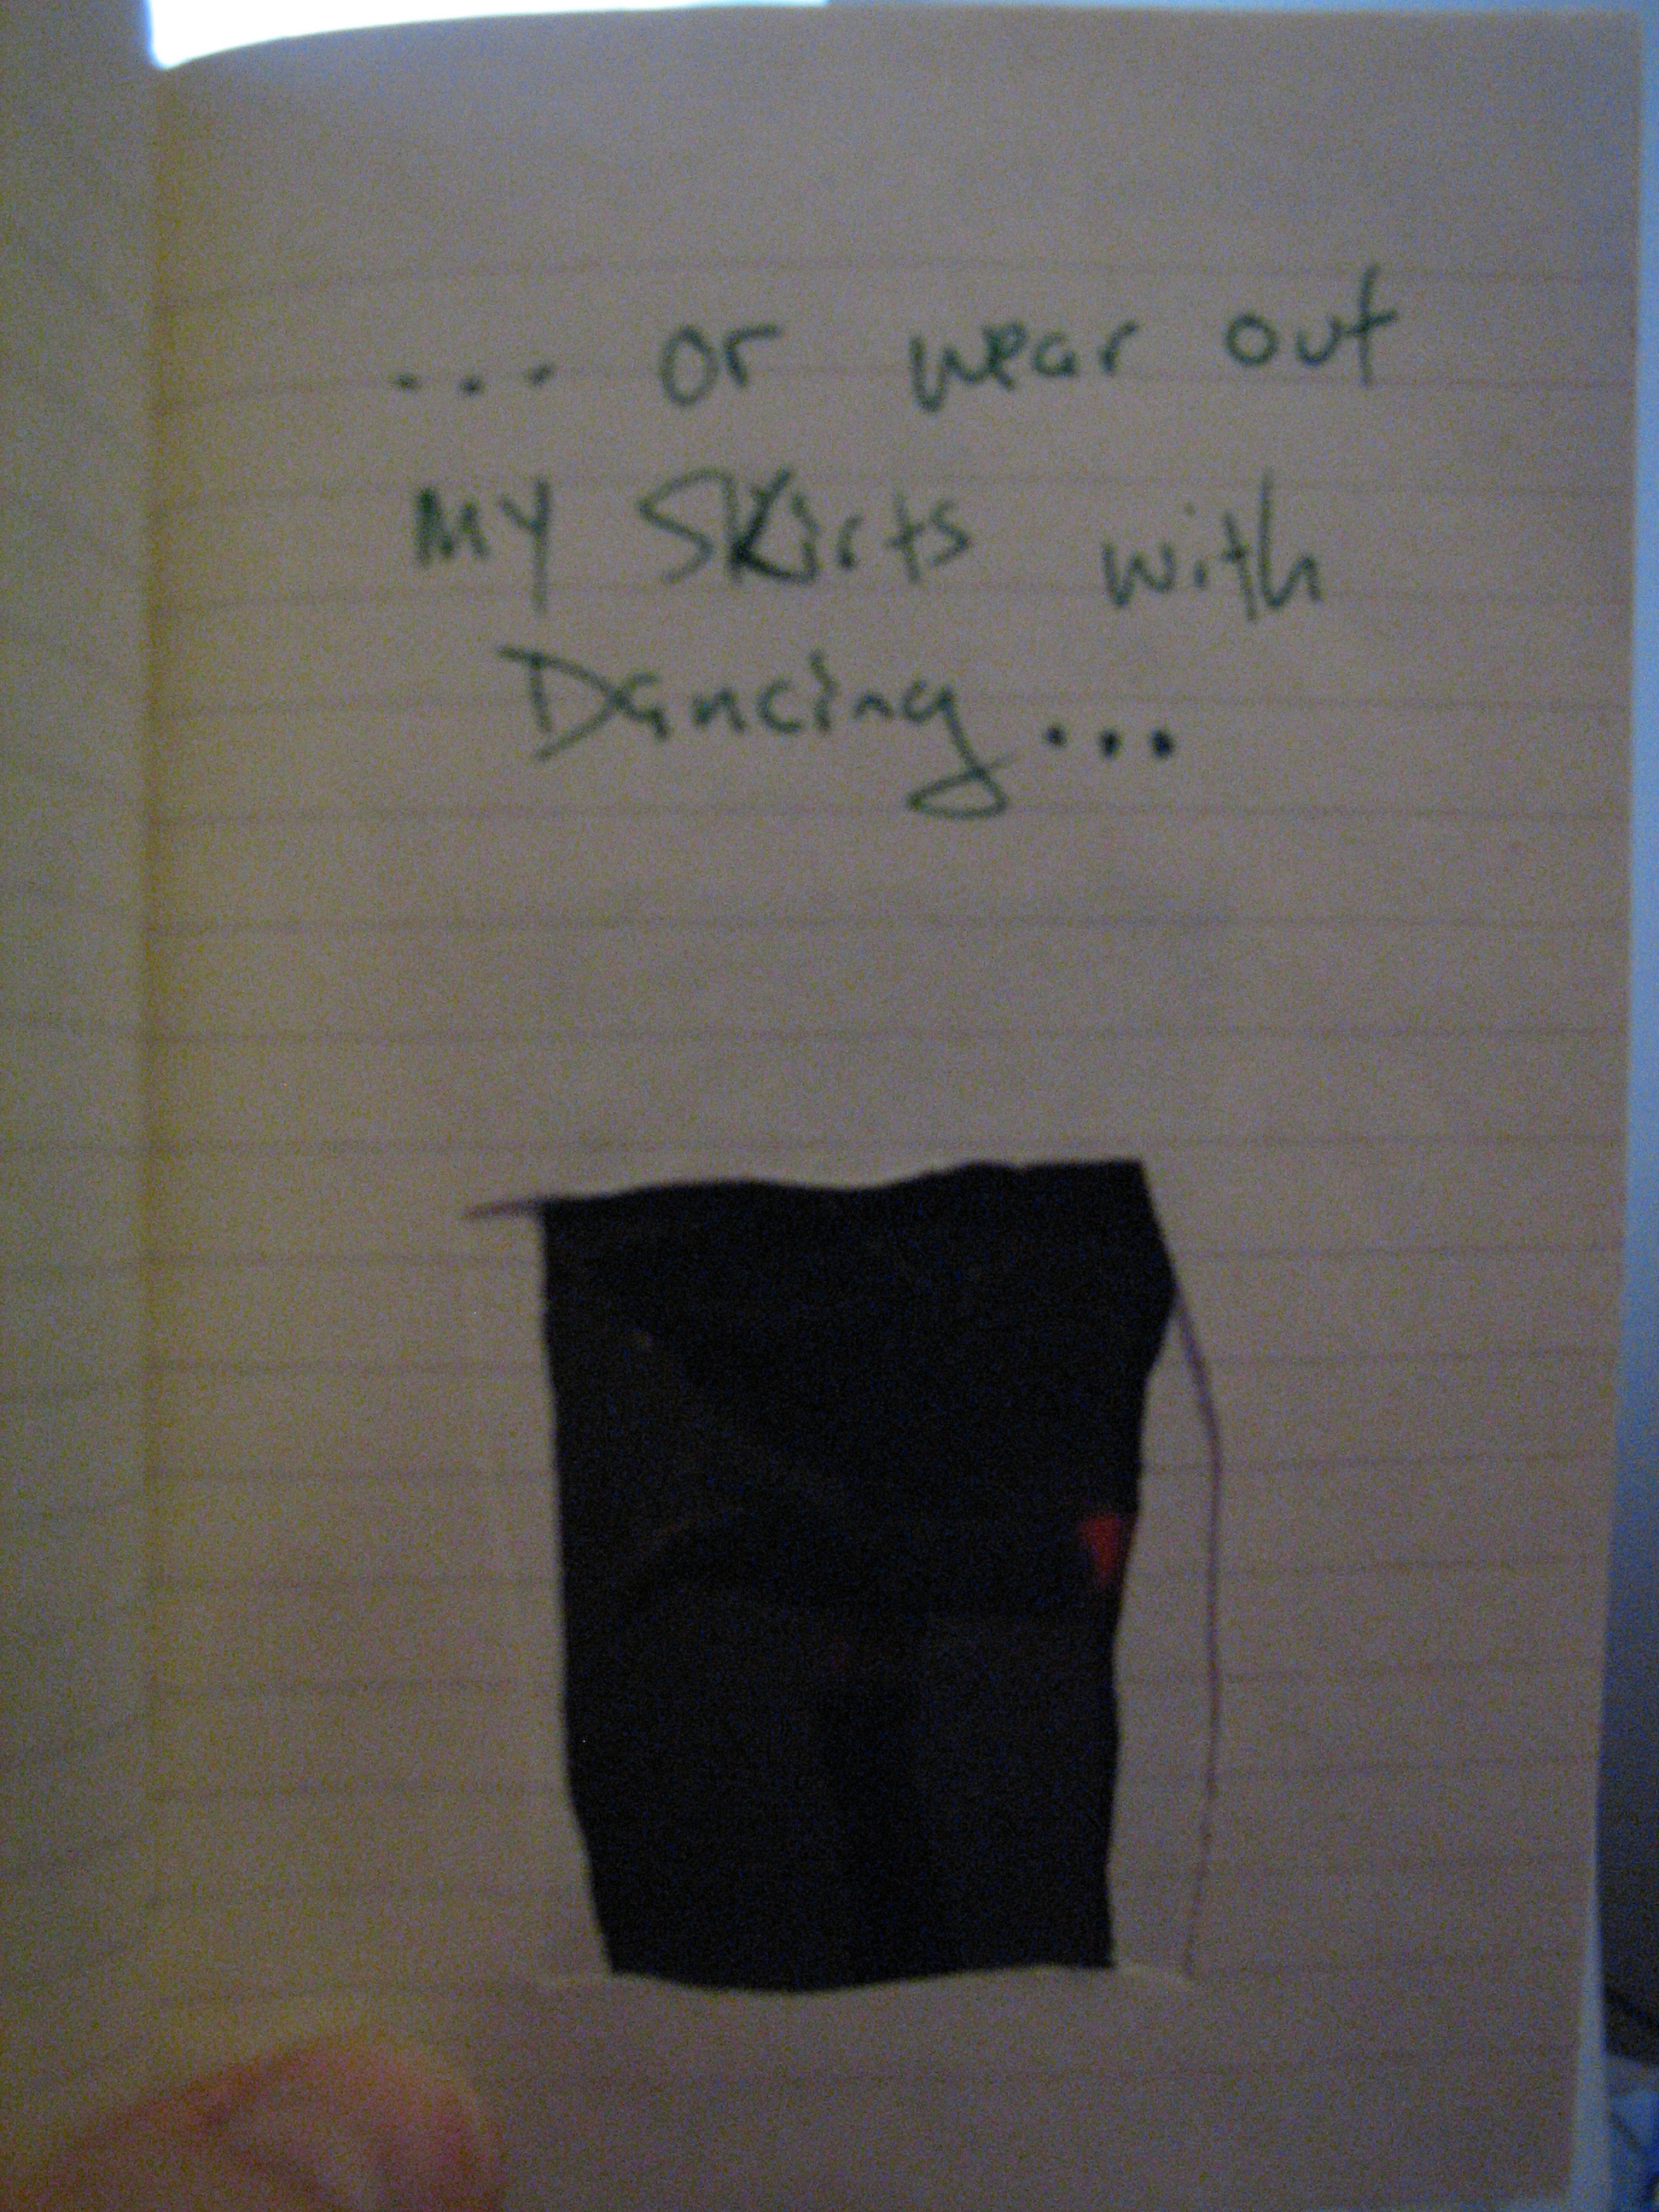 ... or wear out
MY SKirts with
Dancing...